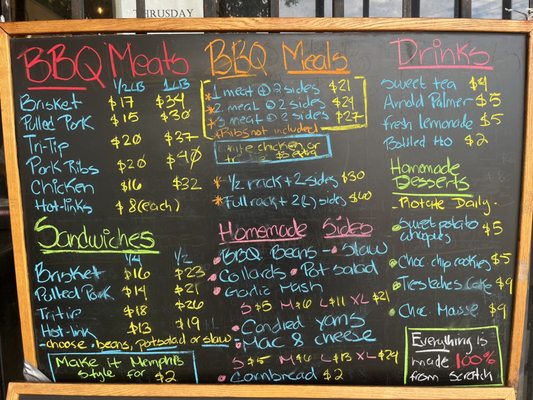 THRUSDAY
BBQ Meats
1/2LB 1LB
Brisket $17 $34
Pulled Pork $15 $30
Tri-Tip $20 $37
Pork Ribs $20 $40
Chicken $16 $32
Hot-links $8(each)
Sandwiches
1/4 1/2
Brisket $16 $23
Pulled Pork $14 $21
Tri-tip $18 $26
Hot-link $13 $19
-choose beans, potsalad or slaw
Make it Memphis
style for $2
BBQ Meals
1 meat + 2 sides $21
2 meat + 2 sides $24
3 meat + 2 sides $27
*Ribs not included
chicken or
1/2 rack + 2 sides $30
Full rack + 2(L) sides $60
Homemade Sides
BBQ Beans - Slaw
Collards Pot salad
Garlic Mash
S $5 M $6 L $11 XL $21
Candied Yams
Mac & cheese
S $5 M $6 L $13 XL $24
Cornbread $2
Drinks
sweet tea $4
Arnold Palmer $5
fresh lemonade $5
Bottled H2O $2
Homemade
Desserts
-Rotate Daily.
Sweet potato
$5
Choc. chip cookies $5
Tres leches Cake $9
Choc. Mousse $9
Everything is
made 100%
from scratch